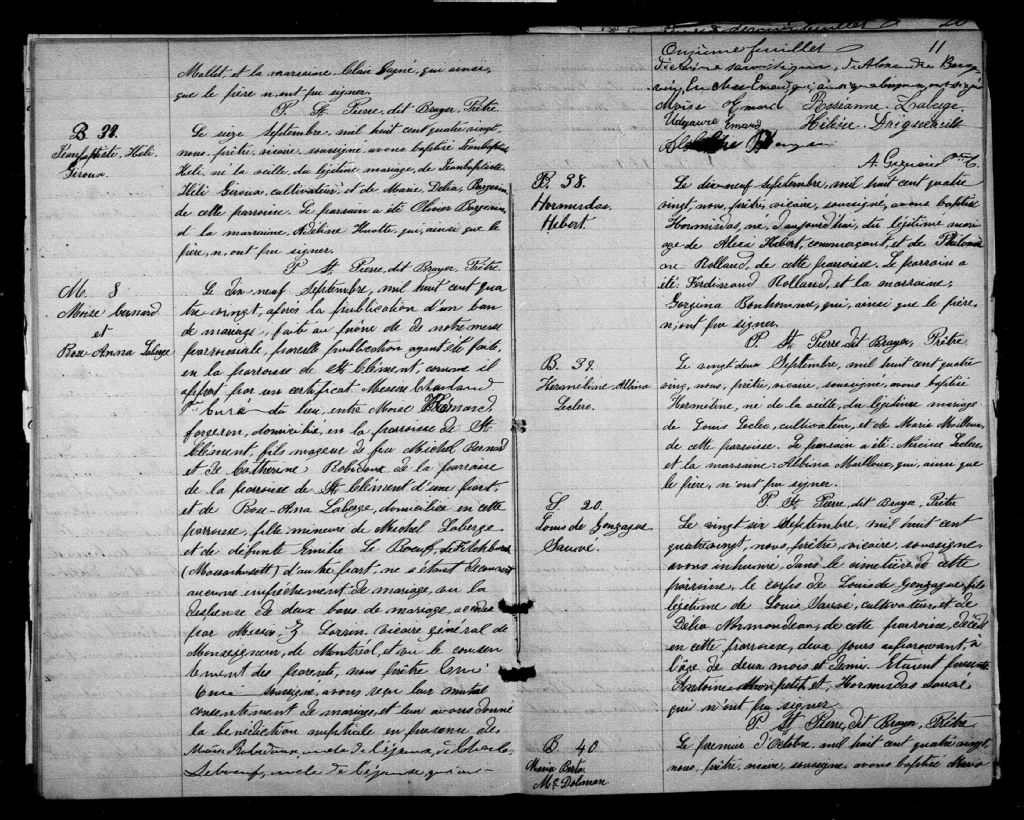 Mallet, et la marraine, Clair Gagné, qui ainsi,
que le père n'ont pu signer.
P. St. Pierre, dit Brayer, Prêtre
B 38.
Jean baptiste, Héli,
Giroux.
Le seize Septembre, mil huit cent quatre vingt,
nous, prêtre, vicaire, soussigné avons baptisé Jean baptiste
Héli, né la veille, du légitime mariage, de Jean baptiste
Héli Giroux, cultivateur, et de Marie, Delia, Bergevin
de cette paroisse. Le parrain a été Olivier Bergevin,
et la marraine, Adéline Huotte qui, ainsi que le
père, n'ont pu signer.
P. St. Pierre, dit Brayer, Prêtre.
M. 8
Moise bernard
et
Rose Anna Laberge
Le Dix neuf Septembre, mil huit cent qua
tre vingt, après la publication d'un ban
de mariage, faite au prône de notre messe
paroissiale, pareille publication ayant été faite,
en la paroisse de St Clément, comme il
appert par un certificat Messire Charland
Ptre Curé du lieu, entre Moise Emard
forgeron, domicilié, en la paroisse de St
Clément, fils majeur de feu Michel Bernard
et de Catherine Robidoux de la paroisse
de la paroisse de St Clément d'une part,
et de Rose-Anna Laberge, domiciliée en cette
paroisse, fille mineure de Michel Laberge
et de défunte Emilie Le Boeuf, de Fitchburg
(Massachusett) d'autre part: ne s'étant découvert
aucun empêchement de mariage, vu la
dispense de deux bans de mariage, accordée
par Messire Z Lorrin, vicaire général de
Monseigneur, de Montréal, et vu le consen
tement des parents, nous prêtre Curé
soussigné, avons reçu leur mutuel
consentement de mariage, et leur avons donné
la bénédiction nuptiale en présence de
Moise Robidoux, oncle de l'époux, de Charles
Leboeuf, oncle de l'épouse, qui
Onzième feuillet
11
Antoine soussigné, d'Alexandre Berge
vin, Eusèbe Emard, qui, ainsi que l'époux, ont signé
Moise Emard Roseanne Laberge
Udgeaure Emard Hélène Daigneault
Alexandre Bergevin
A. Ptre C.
B. 38.
Hormisdas.
Hebert.
Le dix-neuf Septembre, mil huit cent quatre
vingt, nous, prêtre, vicaire, soussigné, avons baptisé
Hormisdas, né, d'aujourd'hui, du légitime mari
age de Alexis Hebert, commerçant, et de Philome
ne Rolland, de cette paroisse. Le parrain a
été: Ferdinand Rolland, et la marraine;
Gorgina Bonhomme, qui, ainsi que le père,
n'ont pu signer.
P. St. Pierre dit Brayer, Prêtre
B. 39.
Herméline Albina
Leclerc.
Le vingt deux Septembre, mil huit cent quatre
vingt, nous, prêtre, vicaire, soussigné, avons baptisé
Herméline, né de la veille, du légitime mariage
de Louis Leclec, cultivateur, et de Marie Mailloux,
de cette paroisse. Le parrain a été: Narcisse Leclerc
et la marraine: Albina Mailloux, qui, ainsi que
le père, n'ont pu signer.
P. St. Pierre, dit Brayer, Prêtre
S. 20.
Louis de Gonzague.
Sauvé.
Le vingt six Septembre, mil huit cent
quatre vingt, nous, prêtre vicaire, soussigné
avons inhumé, dans le cimetière de cette
paroisse, le corps de Louis de Gonzague, fils
légitime de Louis Sauvé, cultivateur, et de
Delia Normandeau, de cette paroisse, décédé
en cette paroisse, deux jours auparavant, à
l'âge de deux mois et demi. Etaient présents
Antoine Monpetit et, Hormisdas Sauvé,
qui n'ont pu signer
P. St. Pierre, dit Brayer, Prêtre
B. 40.
Maria Berta
Mc Dolman
Le premier d'Octobre, mil huit cent quatre vingt,
nous, prêtre, vicaire, soussigné, avons baptisé Maria